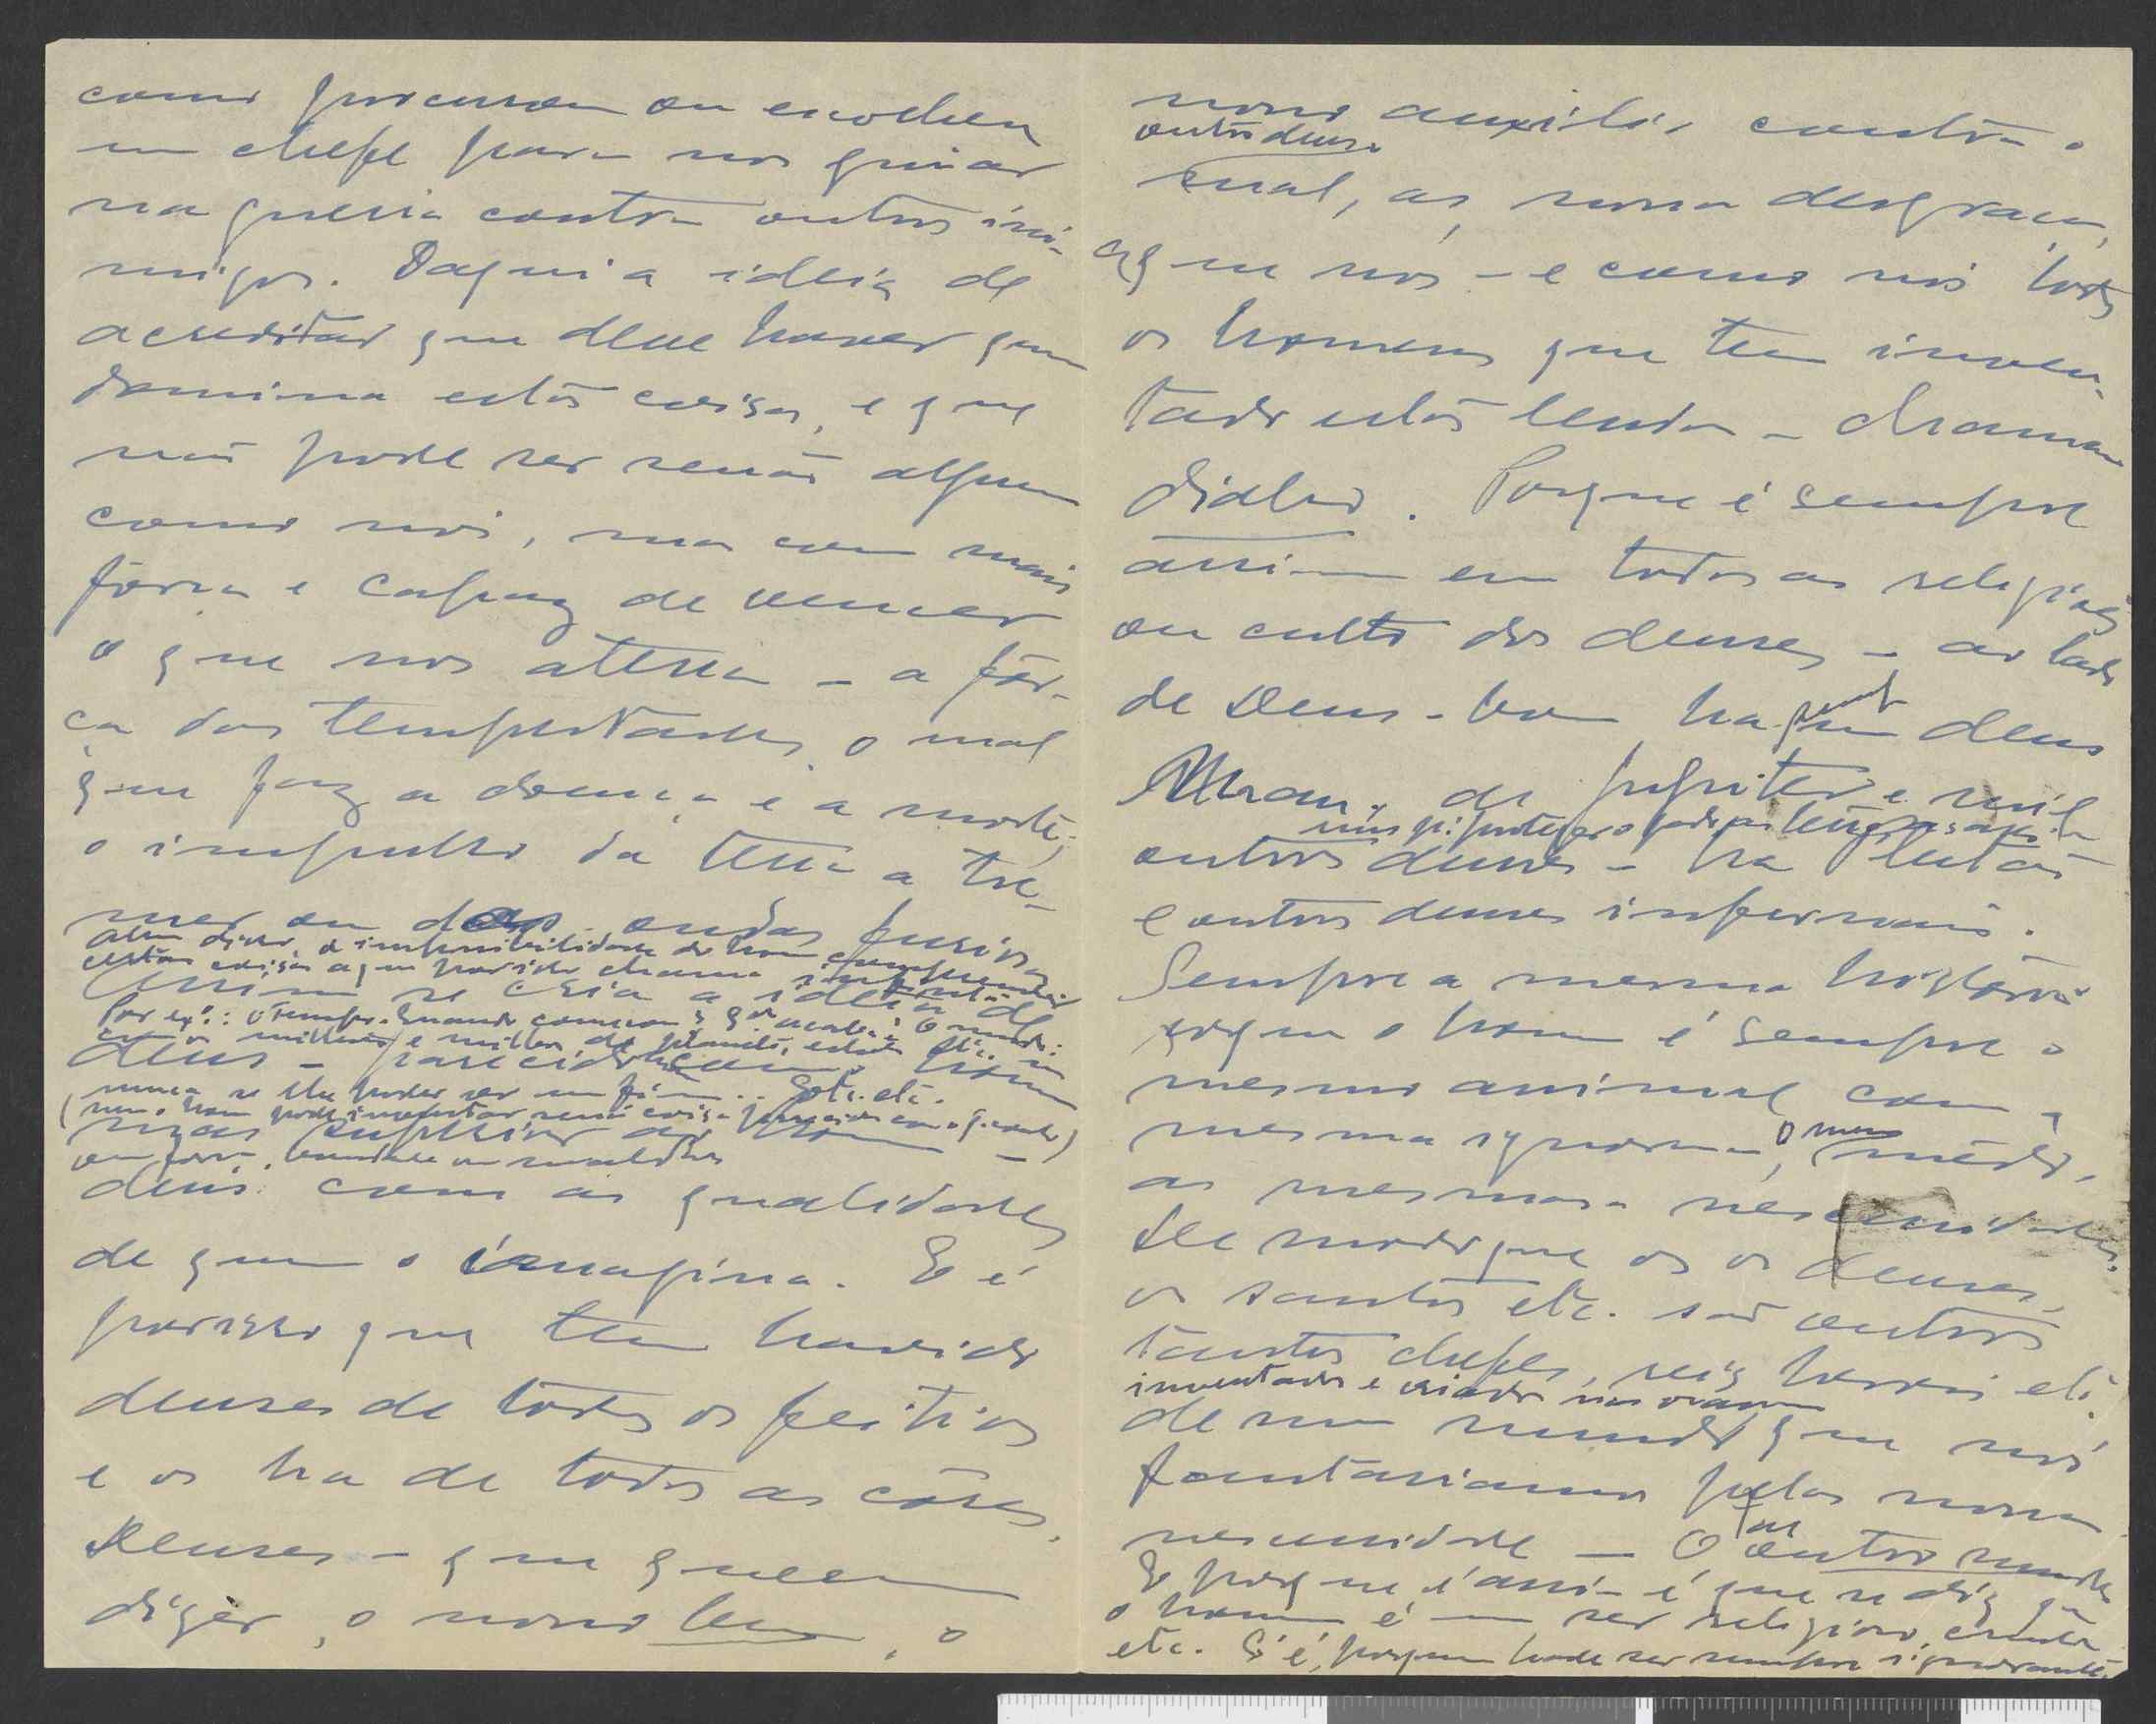 como procuramos ou escolhem
um chefe para nos guiar
na guerra contra outros ini-
migos. Daqui a ideia de
acreditar que deve haver quem
domina estas coisas, e que
não pode ser senão alguem
como nós, mas com mais
força e capaz de vencer
o que nos aterra – a fôr-
ça das tempestades, o mal
que faz a doença e a morte,
o impulso da terra a tre-
mer ou das ondas furiosas
Alem disso, a impossibilidade do homem compreender
certas coisas a que por isso chama infinito
Assim se cria a ideia de
Por ex.º: o tempo. Quando começou e qdo acaba? O mundo:
milhões e milhões de planetas, estrelas etc.
deus – parecido com o homem
nunca se lhe poder ver um fim... etc. etc.
(nem o homem pode inventar senão coisas parecidas com o que conhece)
mas superior ao homem –
em força, bondade ou maldades
deus com as qualidades
de quem o imagina. E é
por isso que tem havido
deuses de todos os feitios
e os ha de todas as côres.
Deuses – que querem
dizer, o nosso bem, o
nosso auxilio contra o
outros deuses
mal, as nossas desgraças,
a que nós – e como nós todos
os homens que tem inven-
tado estas lendas – chamam
diabo. Porque é sempre
assim em todas as religiões
ou culto dos deuses – ao lado
de Deus-bom, ha um deus
mau; de Jupiter e mil
outros deuses – ha Plutão
e outros deuses infernais.
Sempre a mesma historia
porque o homem é sempre o
mesmo animal com a
mesma ignorancia, o mesmo mêdo,
as mesmas necessidades.
De modo que os os deuses,
os santos etc. são outros
tantos chefes, reis, herois etc.
inventados e criados nos
de um mundo que nós
fantasiamos pelas nossas
necessidades – O outro mundo
E porque é assim é que se diz que
o homem é um ser religioso, crente
etc. E é, porque ha de ser sempre ignorante.